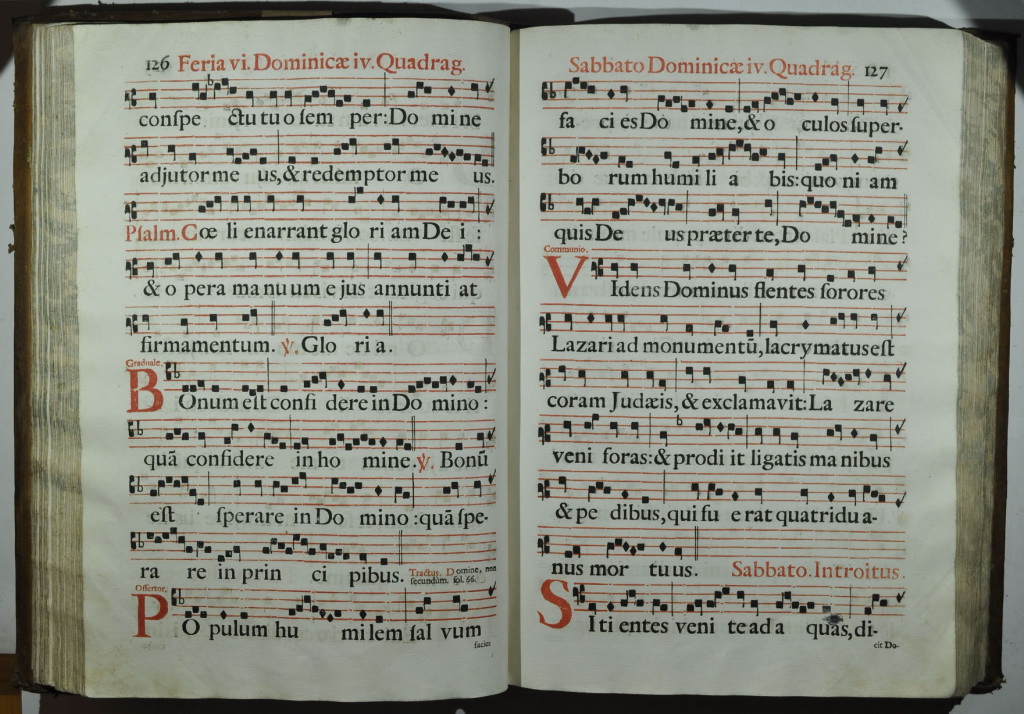 126 Feria vi. Dominicæ iv. Quadrag.
conſpe ctu tu o ſem per: Do mi ne
adjutor me us, & redemptor me us.
Pſalm. Cœ li enarrant glo ri am De i :
& o pera ma nu um e jus annunti at
firmamentum. ℣. Glo ri a.
Graduale.
BOnum eſt confi dere in Do mino :
quā confidere in ho mine. ℣. Bonū
eſt ſperare in Do mino : quā ſpe-
ra re in prin ci pibus. Tractus. Domine, non
ſecundùm. fol. 66.
Offertor.
PO pulum hu milem ſal vum
facies
Sabbato Dominicæ iv. Quadrag. 127
fa ci es Do mine, & o culos ſuper-
bo rum humi li a bis: quo ni am
quis De us præter te, Do mine?
Communio.
VIdens Dominus flentes ſorores
Lazari ad monumentū, lacrymatus eſt
coram Judæis, & exclamavit: La zare
veni foras: & prodi it ligatis ma nibus
& pe dibus, qui fu e rat quatridu a-
nus mor tu us. Sabbato. Introitus.
SIti entes veni te ad a quas, di-
cit Do-